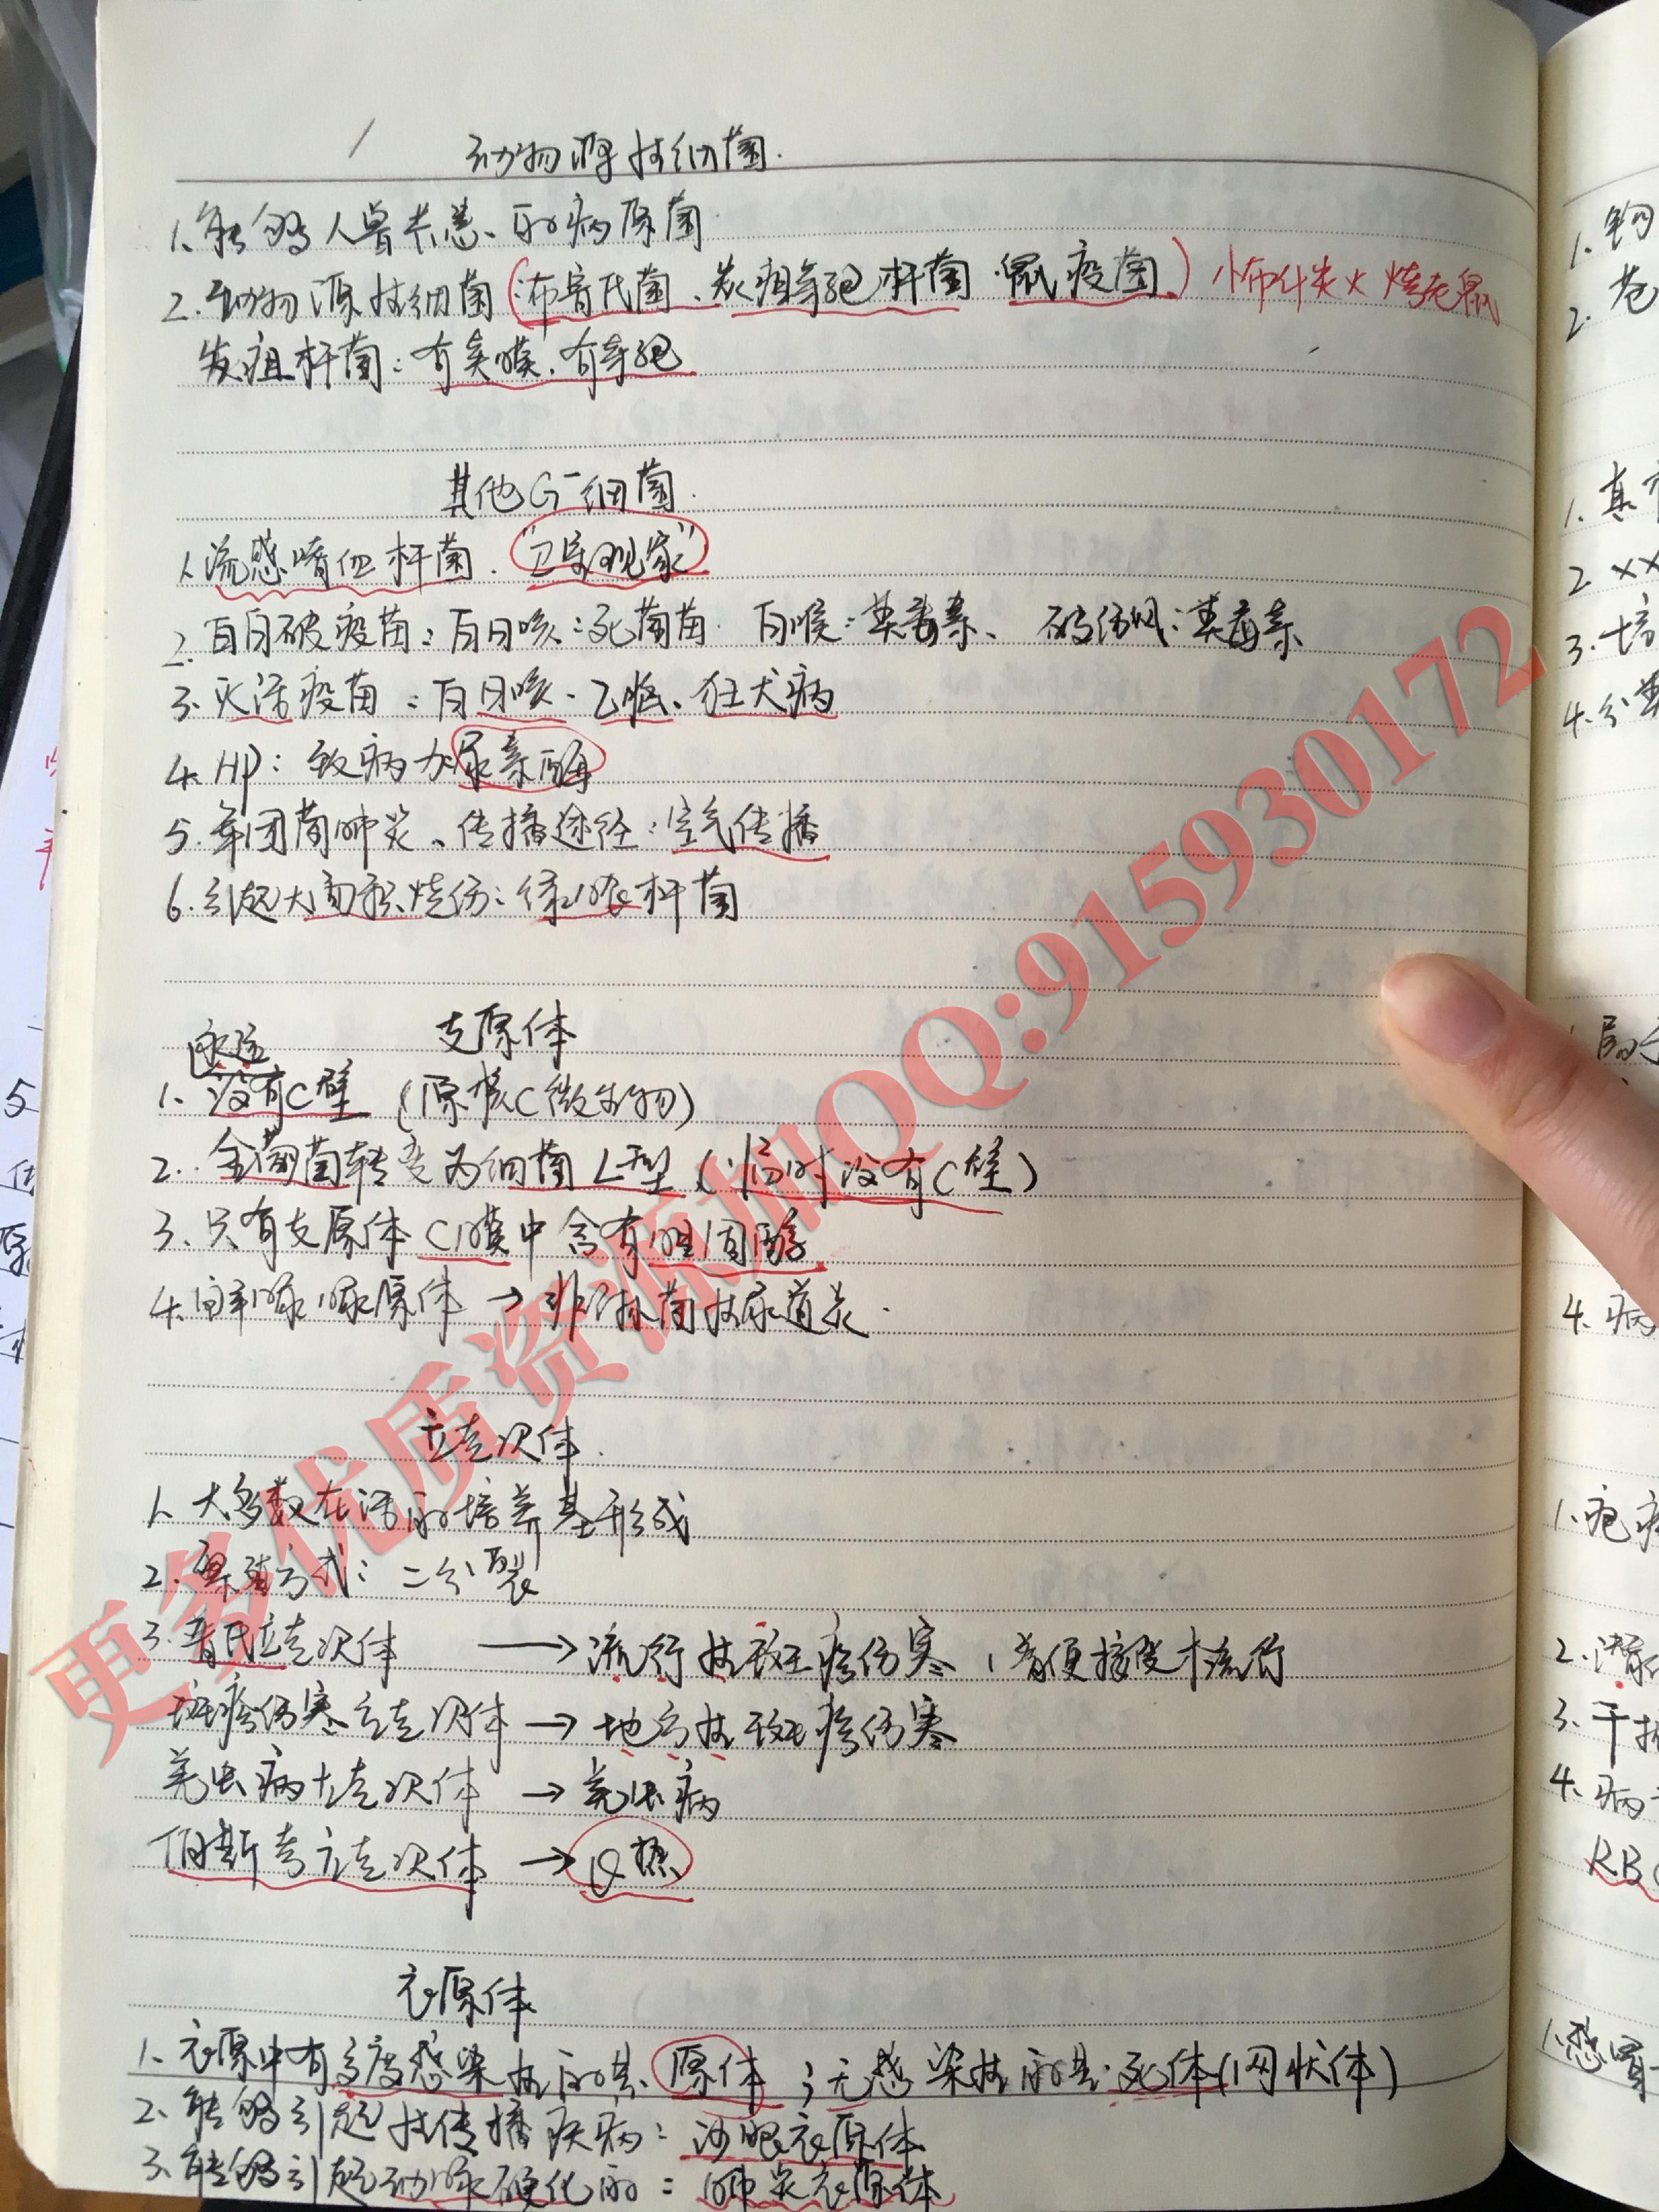 动物源性细菌.
1. 能够人兽共患的病原菌
2. 动物源性细菌(布鲁氏菌、炭疽芽孢杆菌、鼠疫菌) 小布什炭火烧老鼠
炭疽杆菌：有荚膜、有芽孢
其他G⁻细菌.
1. 流感嗜血杆菌. "卫星现象"
2. 百白破疫苗：百日咳：死菌苗. 白喉：类毒素、 破伤风：类毒素
3. 灭活疫苗：百日咳、乙脑、狂犬病
4. HP：致病力尿素酶
5. 军团菌肺炎、传播途径：空气传播
6. 引起大面积烧伤：绿脓杆菌
支原体
永远
1. 没有C壁 (原核C微生物)
2. 金葡菌转变为细菌L型 (临时没有C壁)
3. 只有支原体C膜中含有胆固醇
4. 解脲脲原体 → 非淋菌性尿道炎.
立克次体.
1. 大多数在活的培养基形成
2. 繁殖方式：二分裂
3. 普氏立克次体 → 流行性斑疹伤寒
斑疹伤寒立克次体 → 地方性斑疹伤寒
恙虫病立克次体 → 恙虫病
伯斯考立克次体 → Q热
衣原体
1. 衣原中有高度感染性的是 原体；无感染性的是：死体(网状体)
2. 能够引起性传播疾病：沙眼衣原体
3. 能够引起动脉硬化的：肺炎衣原体
更多优质资源加QQ:915930172